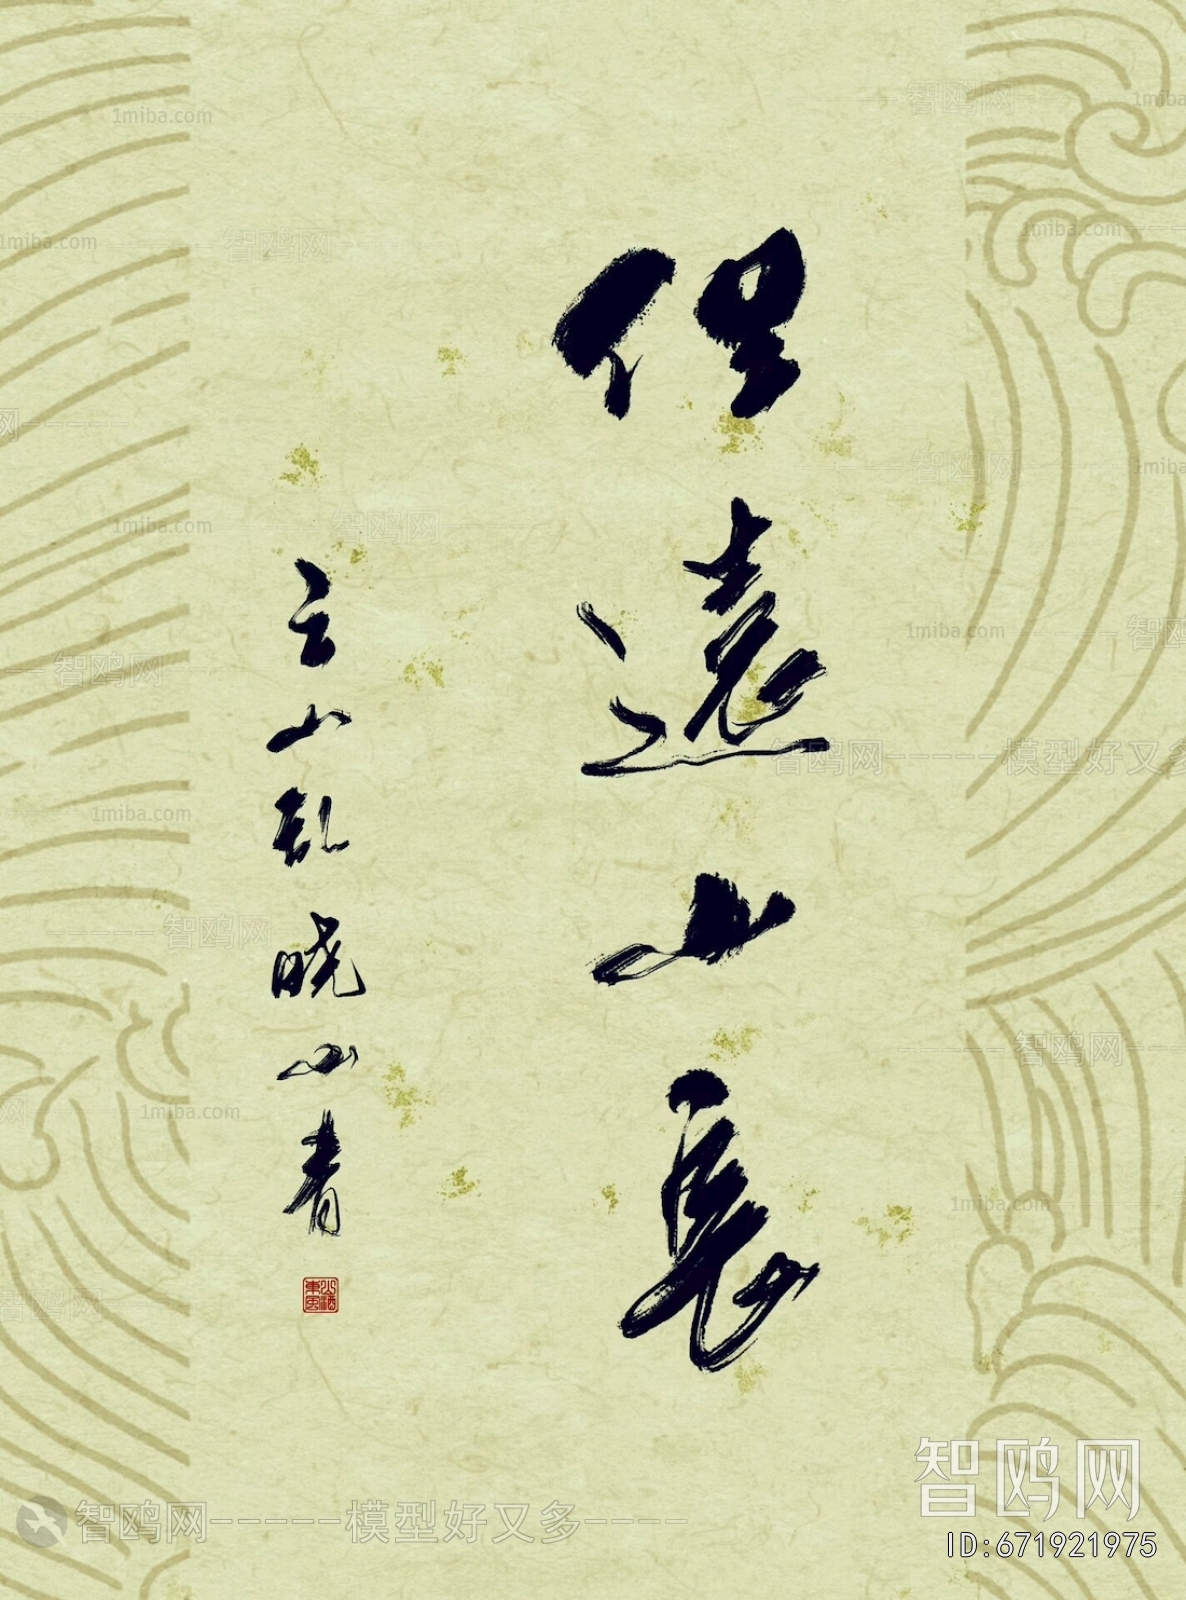 但遠山長
云山乱
晓山青
1miba.com
智鸥网
模型好又多
智鸥网-----模型好又多----
智鸥网
ID:671921975